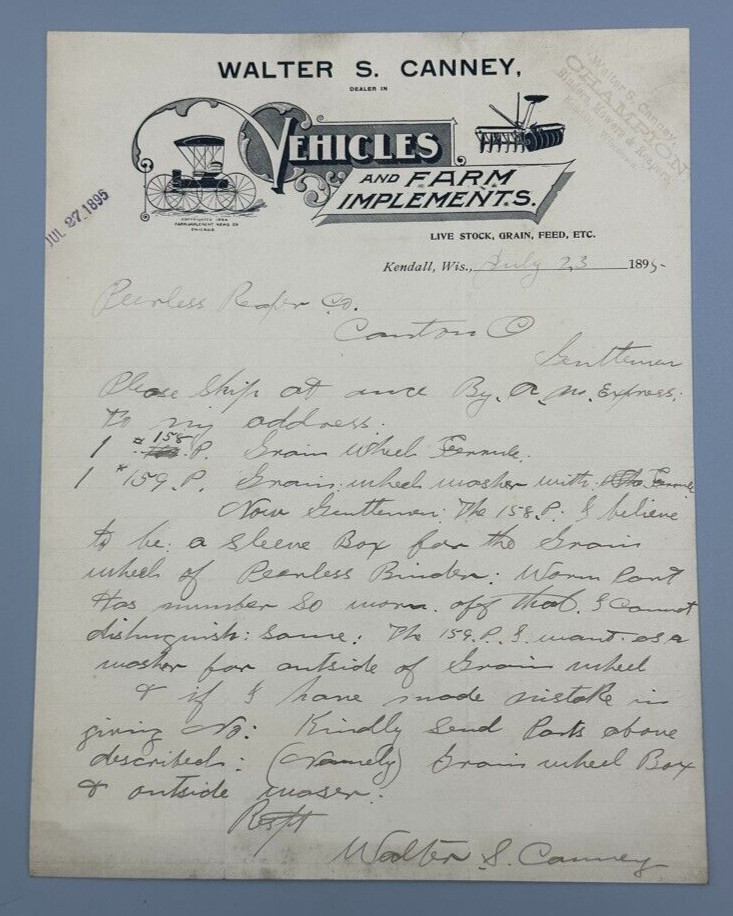 WALTER S. CANNEY,
DEALER IN
VEHICLES
AND FARM
IMPLEMENTS.
COPYRIGHTED 1894
FARM IMPLEMENT NEWS CO
CHICAGO
LIVE STOCK, GRAIN, FEED, ETC.
Walter S. Canney,
CHAMPION
Binders, Mowers & Reapers,
JUL 27 1895
Kendall, Wis., July 23 1895-
Peerless Reaper Co.
Canton O
Gentlemen
Please Ship at once By. Am. Express.
to my address.
1 # 158 .P. Grain wheel Ferrule.
1 # 159.P. Grain wheel washer with Ferrule
Now Gentlemen: The 158.P. I believe
to be: a Sleeve Box for the Grain
wheel of Peerless Binder: Worn Part
Has number so worn off that I Cannot
distinguish: same: The 159.P. I want as a
washer for outside of Grain wheel
& if I have made mistake in
giving No: Kindly Send Parts above
described: (Namely) Grain wheel Box
& outside waser:
Respt
Walter S. Canney